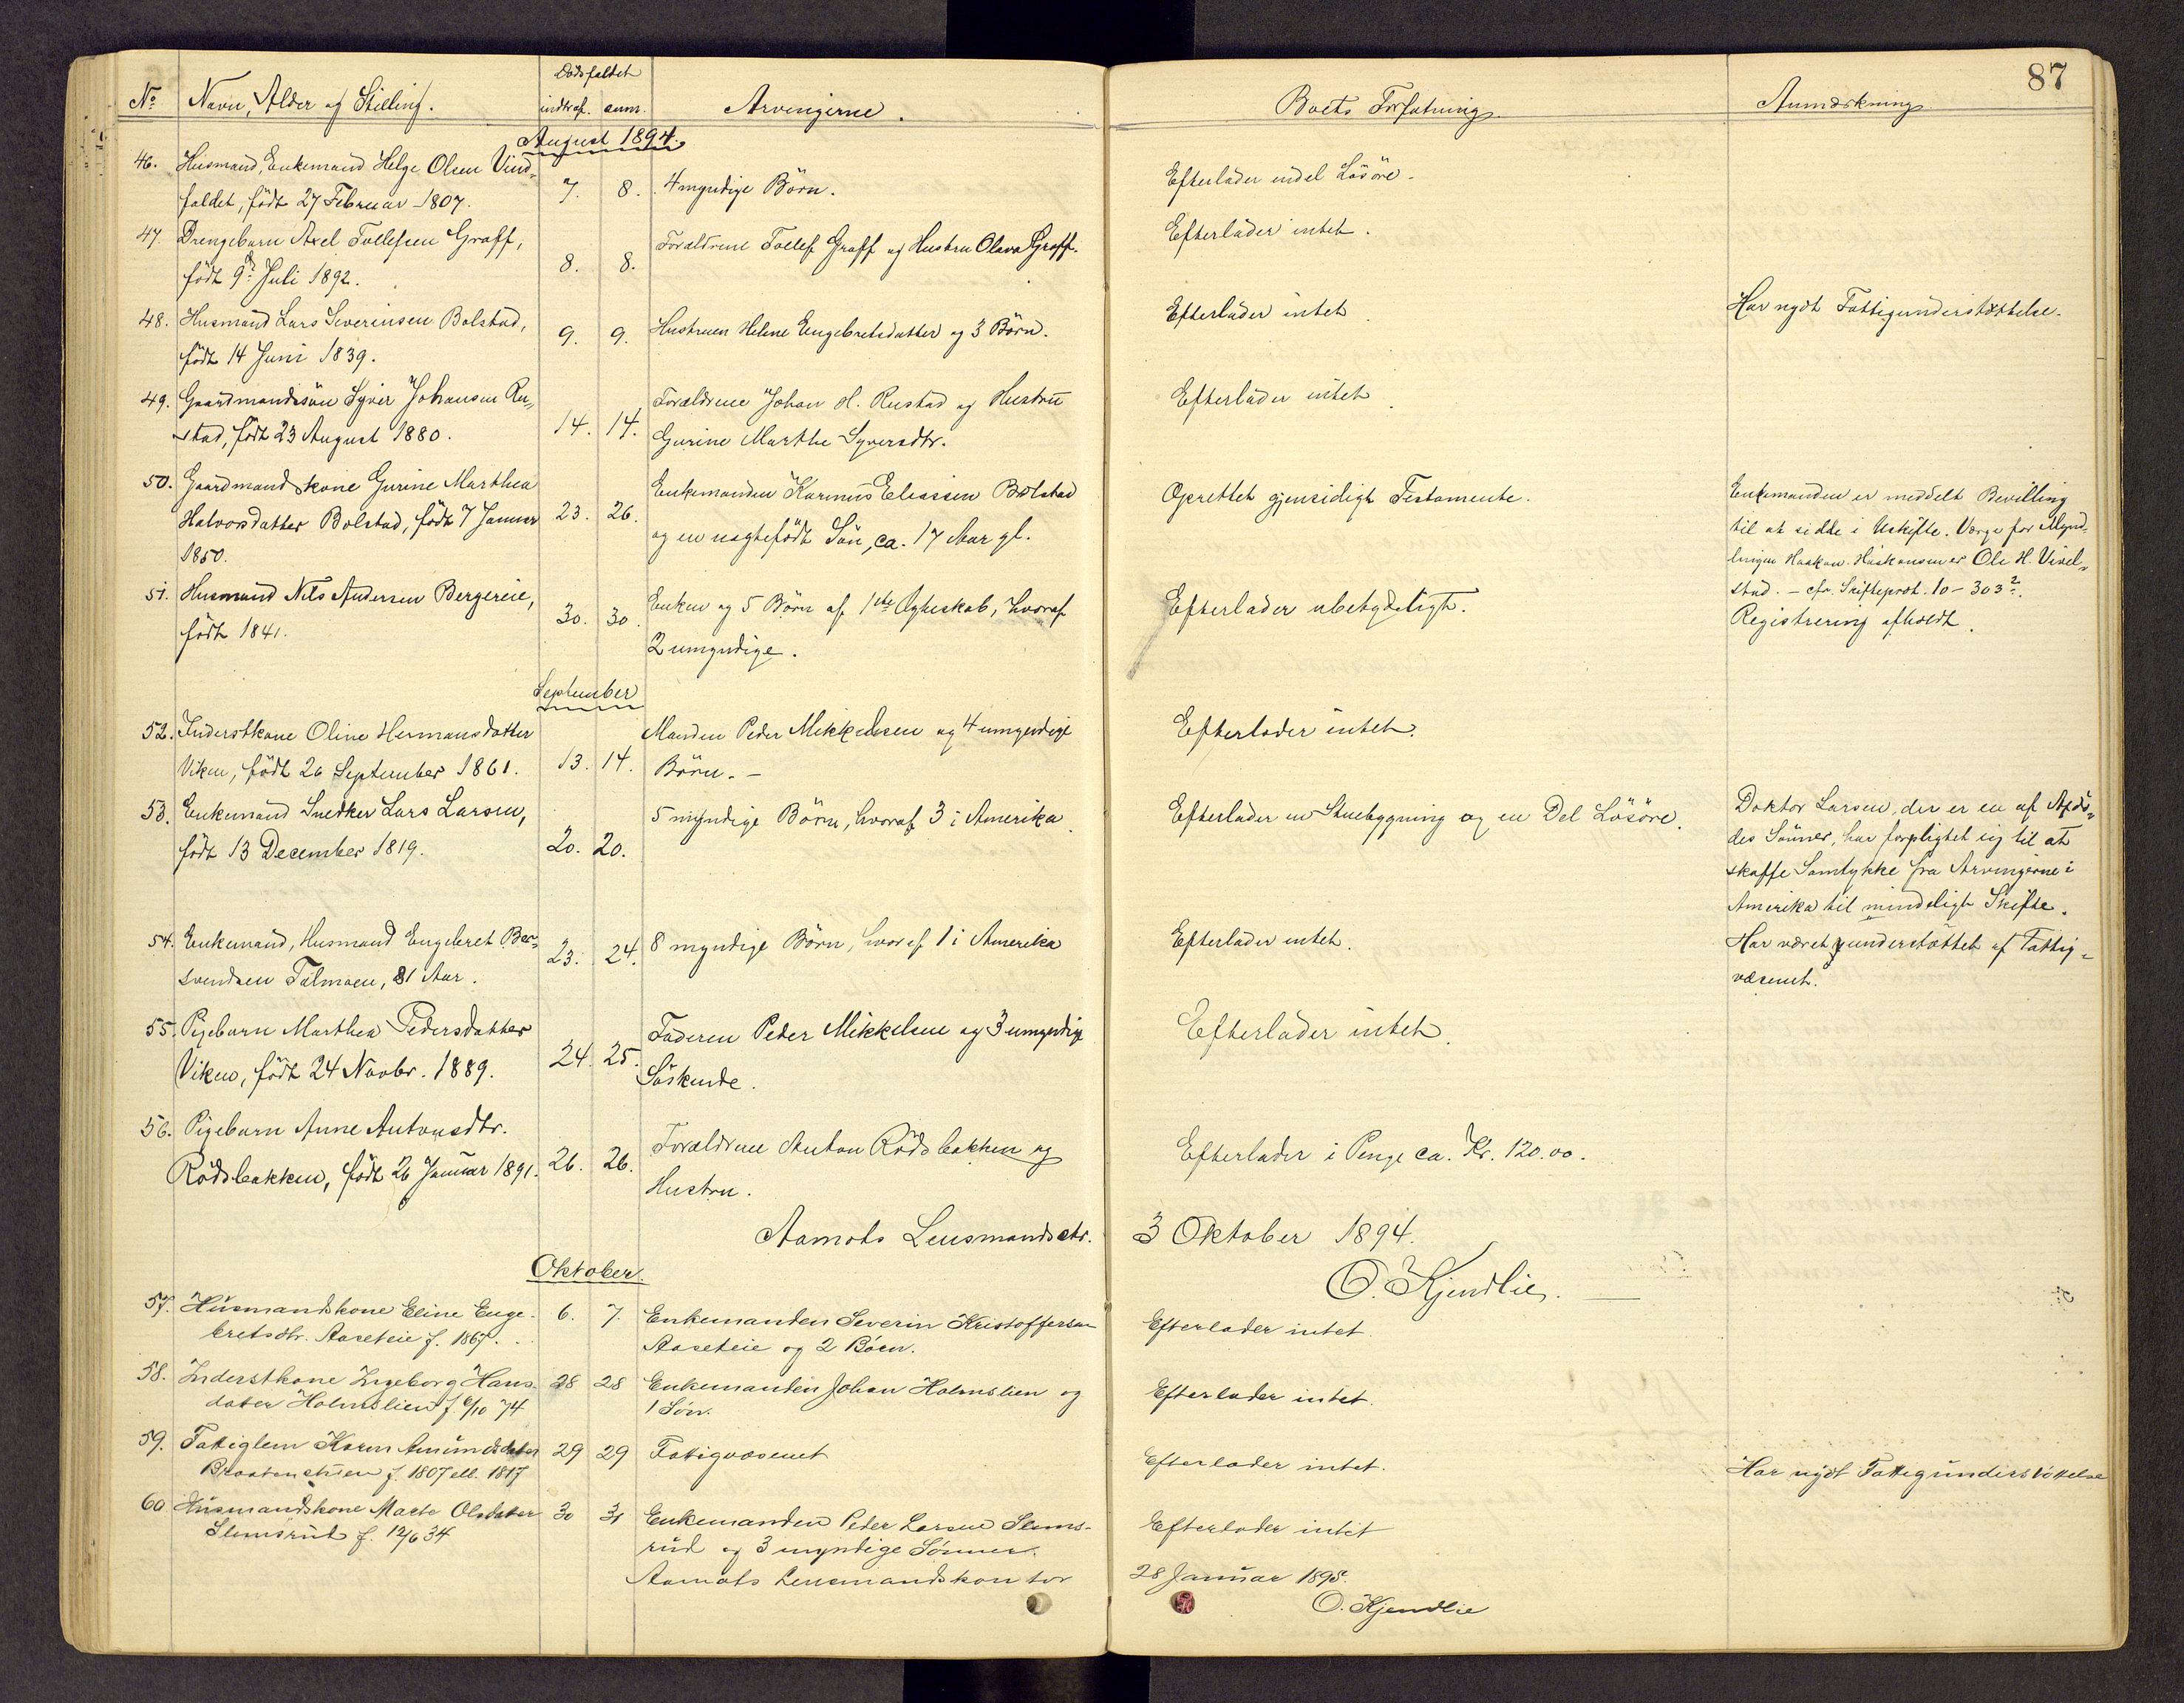 87
No Navn, Alder og Stilling. Dödsfaldet indtraf. anm. Arvingerne. Boets Forfatning. Anmærkning
August 1894.
46. Husmand, Enkemand Helge Olsen Vind-
faldet, född 27 Februar 1807. 7. 8. 4 myndige Börn. Efterlader endel Lösöre.
47. Drengebarn Axel Tollefsen Graff,
född 9de Juli 1892. 8. 8. Forældrene Tollef Graff og Hustru Olava Graff. Efterlader intet.
48. Husmand Lars Severinsen Bolstad,
född 14 Juni 1839. 9. 9. Hustruen Helene Engebretsdatter og 3 Börn. Efterlader intet Har nydt Fattigunderstøttelse.
49. Gaardmandssön Syver Johansen Ru-
stad, född 23 August 1880. 14. 14. Forældrene Johan H. Rustad og Hustru
Gurine Marthe Syversdtr. Efterlader intet
50. Gaardmandskone Gurine Marthea
Halvorsdatter Bolstad, född 7 Januar
1850. 23. 26. Enkemanden Karinus Eliassen Bolstad
og en uægtefödt Sön, ca. 17 Aar gl. Oprettet gjensidigt Testamente. Enkemanden er meddelt Bevilling
til at sidde i Uskifte. Værge for Mynd-
lingen Haakon Haakonsen er Ole H. Vivel-
stad. - cfr. Skifteprot. 10 - 303 2.
51. Husmand Nils Andersen Bergereie,
född 1841. 30. 30. Enken og 5 Börn af 1ste Ægteskab, hvoraf
2 umyndige. Efterlader ubetydeligt. Registrering afholdt.
September
52. Inderstkone Oline Hermansdatter
Viken, född 26 September 1861. 13. 14. Manden Peder Mikkelsen og 4 umyndige
Börn. - Efterlader intet.
53. Enkemand Snedker Lars Larsen,
född 13 December 1819. 20. 20. 5 myndige Börn, hvoraf 3 i Amerika. Efterlader en Stuebygning og en Del Lösöre. Doktor Larsen, der er en af Afdö-
des Sönner, har forpligtet sig til at
skaffe Samtykke fra Arvingerne i
Amerika til mindeligt Skifte.
54. Enkemand, Husmand Engebret Ber-
svendsen Talmoen, 81 Aar. 23. 24. 8 myndige Börn, hvoraf 1 i Amerika Efterlader intet. Har været understöttet af Fattig-
væsenet.
55. Pigebarn Marthea Pedersdatter
Viken, född 24 Novbr. 1889. 24. 25. Faderen Peder Mikkelsen og 3 umyndige
Söskende. Efterlader intet.
56. Pigebarn Anne Antonsdtr.
Rödsbakken, född 26 Januar 1891. 26. 26. Forældrene Anton Rödsbakken og
Hustru. Efterlader i Penge ca. Kr. 120.00.
Aamots Lensmandsktr. 3 Oktober 1894.
O. Kjendlie.
Oktober.
57. Husmandskone Eline Enge-
bretsdtr. Aaseteie f. 1867. 6. 7. Enkemanden Severin Kristoffersen
Aaseteie og 2 Börn. Efterlader intet.
58. Inderstkone Ingeborg Hans-
datter Holmslien f. 6/10 74 28 28 Enkemanden Johan Holmslien og
1 Sön. Efterlader intet.
59. Fattiglem Karen Amundsdatter
f. 1807 ell. 1817 29 29 Fattigvæsenet Efterlader intet. Har nydt Fattigunderstöttelse
60 Husmandskone Marte Olsdatter
Slemsrud f. 12/6 34 30 31 Enkemanden Peder Larsen Slems-
rud og 3 myndige Sönner. Efterlader intet
Aamots Lensmandskontor 28 Januar 1895.
O. Kjendlie